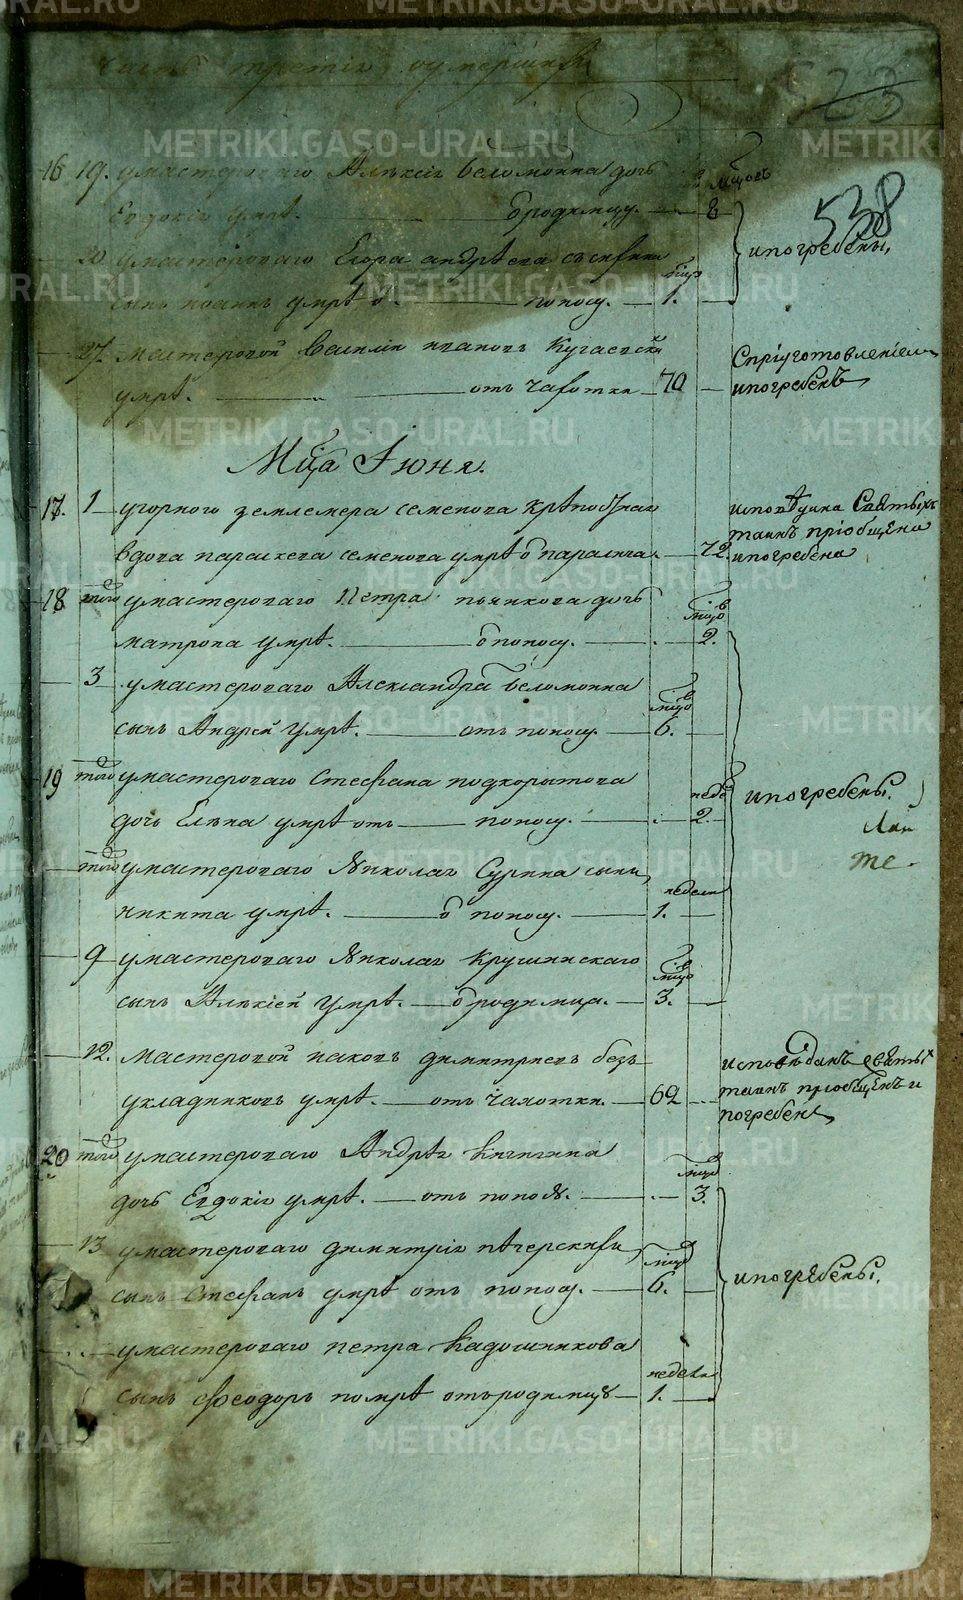 Часть третiя умершихъ
523
538
16 19. у мастероваго Алѣксiя Беломоина дочь мцовъ
Евдокiя умрѣ. о родимцу. 8
20 у мастероваго Егора андрѣева
сынъ iоаннъ умрѣ о поносу. 1.
ипогребены,
27. мастеровой Василiй ивановъ
умрѣ. отъ чахотки 70
Сприуготовленiем
ипогребенъ
Мца Июня.
17. 1 угорного землемера семенова крѣпостная
вдова параскева семенова умрѣ о паралича 72.
исповѣдина Святыхъ
таинъ прiобщена
ипогребена
18 того у мастероваго Петра пьянкова дочь
матрона умрѣ. о поносу. 2.
3 у мастероваго Александра Беломоина
сынъ Андрей умрѣ. отъ поносу 6.
19 того у мастероваго Стефана подкорытова
дочь Елѣна умрѣ отъ поносу. неде 2.
ипогребены.
того у мастероваго Николая Сурина сынъ
никита умрѣ. о поносу. недели 1.
9 у мастероваго Николая Крушинскаго
сынъ Алѣксiей умрѣ. о родимца. 3.
12. мастеровой иаковъ димитриевъ безъ
укладниковъ умрѣ. отъ чахотки. 62
исповѣданъ святы
таинъ прiобщенъ и
погребенъ
20 того у мастероваго Андрѣя Кичигина
дочь Евдокiя умрѣ. отъ поноs. 3.
13 у мастероваго димитрiя пѣчерскихъ
сынъ Стефанъ умрѣ отъ поносу. 6.
ипогрѣбены.
у мастероваго петра Кадошникова
сынъ феодоръ помрѣ отъродимцу недели 1.
METRIKI.GASO-URAL.RU